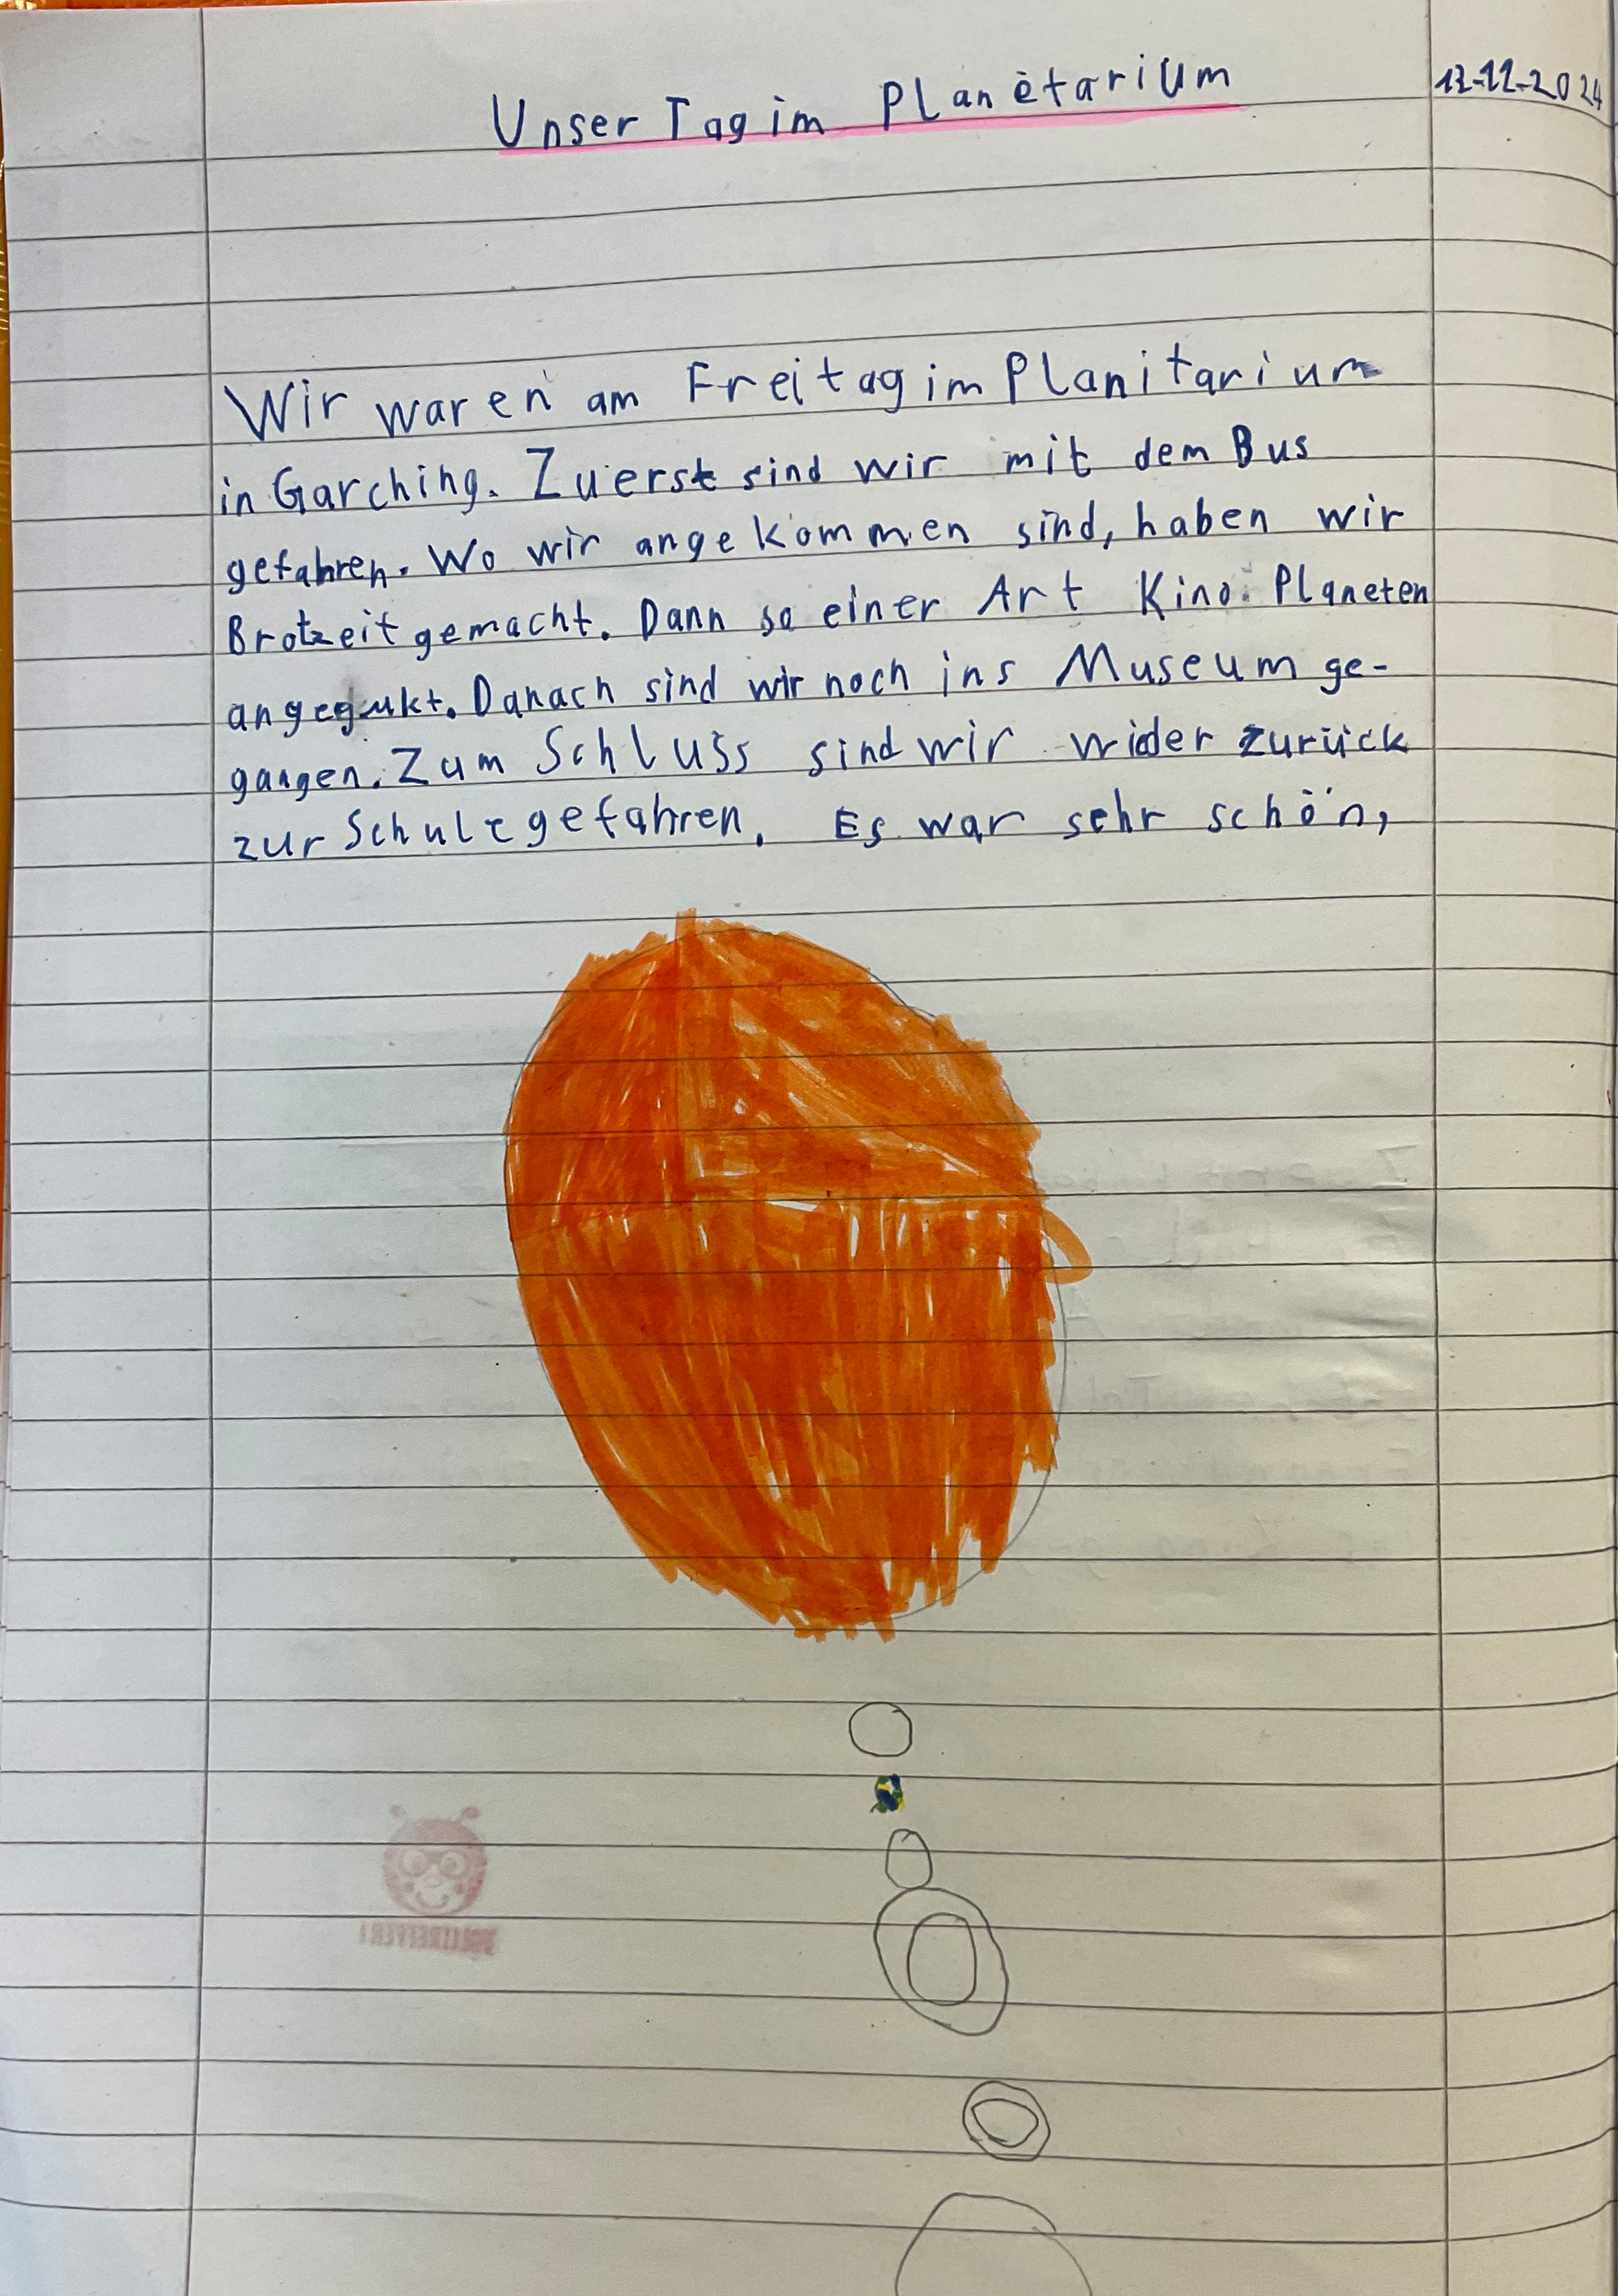 Unser Tag im Planetarium
13-12-2024
Wir waren am Freitag im Planitarium
in Garching. Zuerst sind wir mit dem Bus
gefahren. Wo wir angekommen sind, haben wir
Brotzeit gemacht. Dann so einer Art Kino. Planeten
angegukt. Danach sind wir noch ins Museum ge-
gangen. Zum Schluss sind wir wider zurück
zur Schule gefahren. Es war sehr schön,